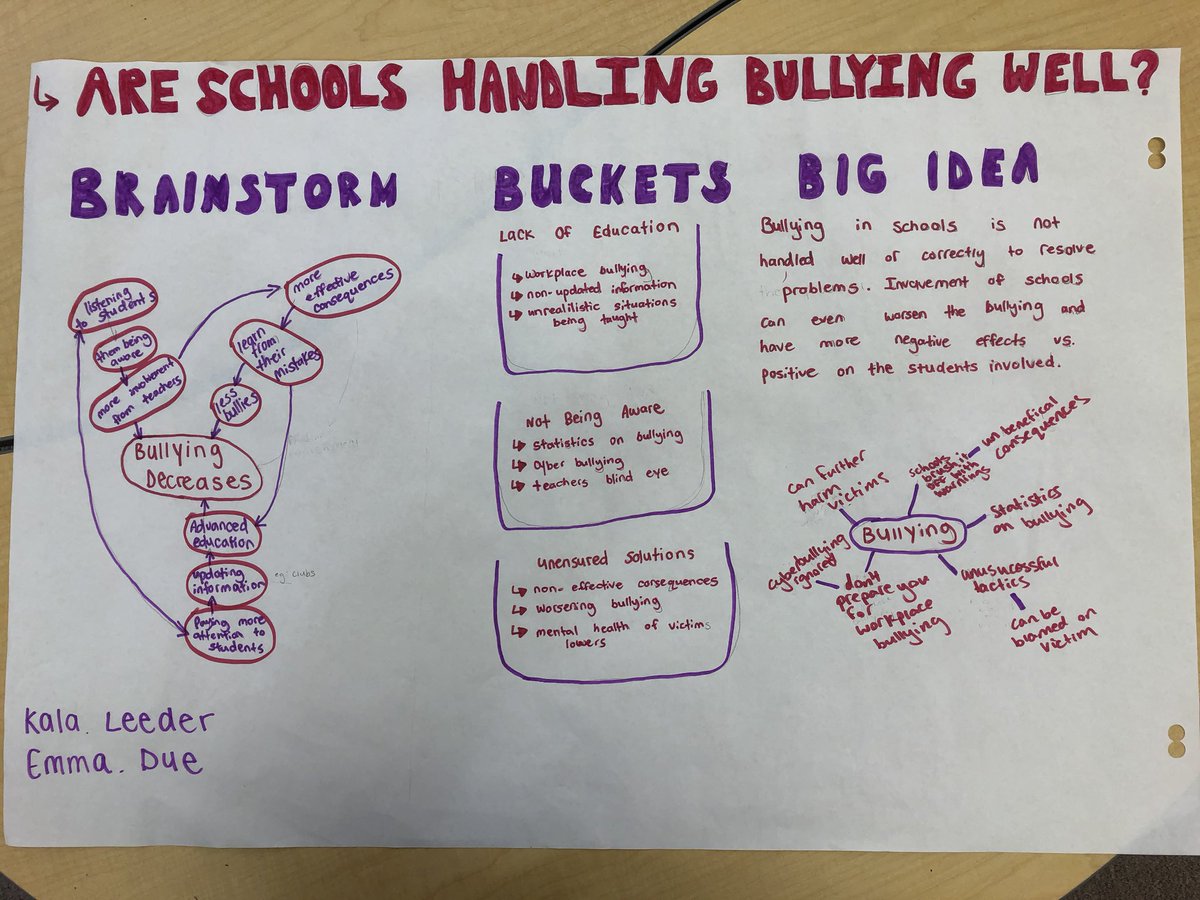 ↳ ARE SCHOOLS HANDLING BULLYING WELL?
BRAINSTORM
listening
to students
them being
aware
more involvement
from teachers
more
effective
consequences
learn
from
their
mistakes
less
bullies
Bullying
Decreases
Advanced
education
updating
information
eg: clubs
Paying more
attention to
students
Kala. Leeder
Emma. Due
BUCKETS
Lack Of Education
↳ workplace bullying
↳ non-updated information
↳ unrealilistic situations
being taught
Not Being Aware
↳ statistics on bullying
↳ cyber bullying
↳ teachers blind eye
unensured solutions
↳ non-effective consequences
↳ worsening bullying
↳ mental health of victims
lowers
BIG IDEA
Bullying in schools is not
handled well or correctly to resolve
problems. Involvement of schools
can even worsen the bullying and
have more negative effects vs.
positive on the students involved.
Bullying
can further
harm
victims
schools
brush it
off with
warnings
unbenefical
consequences
Statistics
on bullying
unsucessful
tactics
can be
blamed on
victim
don't
prepare you
for
workplace
bullying
cyberbullying
ignored